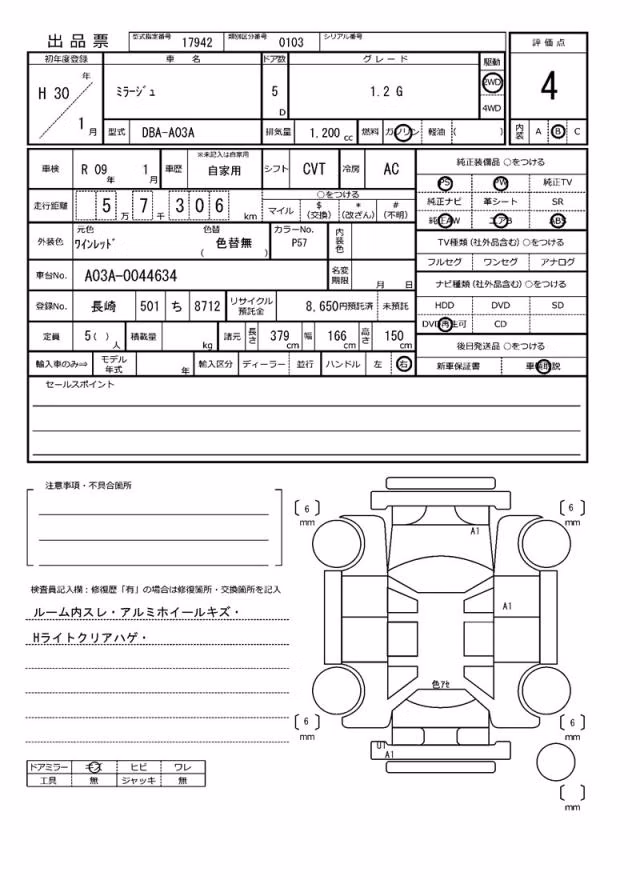 出品票 型式指定番号 17942 類別区分番号 0103 シリアル番号
評価点
4
内装 A B C
初年度登録 車名 ドア数 グレード 駆動
H 30 年 1 月 ﾐﾗｰｼﾞｭ 5 D 1.2 G 2WD 4WD
型式 DBA-A03A 排気量 1.200 cc 燃料 ガソリン 軽油 ( )
車検 R 09 年 1 月 車歴 ※未記入は自家用 自家用 シフト CVT 冷房 AC
走行距離 5 万 7 千 3 0 6 km
○をつける
マイル $ (交換) * (改ざん) # (不明)
外装色 元色 ﾜｲﾝﾚｯﾄﾞ 色替 ( 色替無 ) カラーNo. P57 内装色
車台No. A03A-0044634 名変期限 月 日
登録No. 長崎 501 ち 8712 リサイクル預託金 8,650円預託済 未預託
定員 5 ( ) 人 積載量 kg 諸元 長さ 379 cm 幅 166 cm 高さ 150 cm
輸入車のみ⇒ モデル年式 年 輸入区分 ディーラー 並行 ハンドル 左 右
純正装備品 ○をつける
PS PW 純正TV
純正ナビ 革シート SR
純正AW エアB ABS
TV種類 (社外品含む) ○をつける
フルセグ ワンセグ アナログ
ナビ種類 (社外品含む) ○をつける
HDD DVD SD
DVD再生可 CD
後日発送品 ○をつける
新車保証書 車輌取説
セールスポイント
注意事項・不具合箇所
検査員記入欄：修復歴「有」の場合は修復箇所・交換箇所を記入
ルーム内スレ・アルミホイールキズ・
Hライトクリアハゲ・
ドアミラー キズ ヒビ ワレ
工具 無 ジャッキ 無
6 mm
6 mm
A1
A1
色ｱｾ
6 mm
6 mm
U1
A1
mm